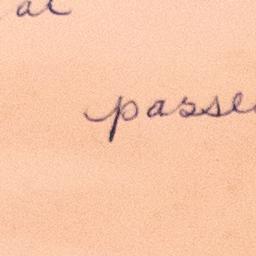 at
passe